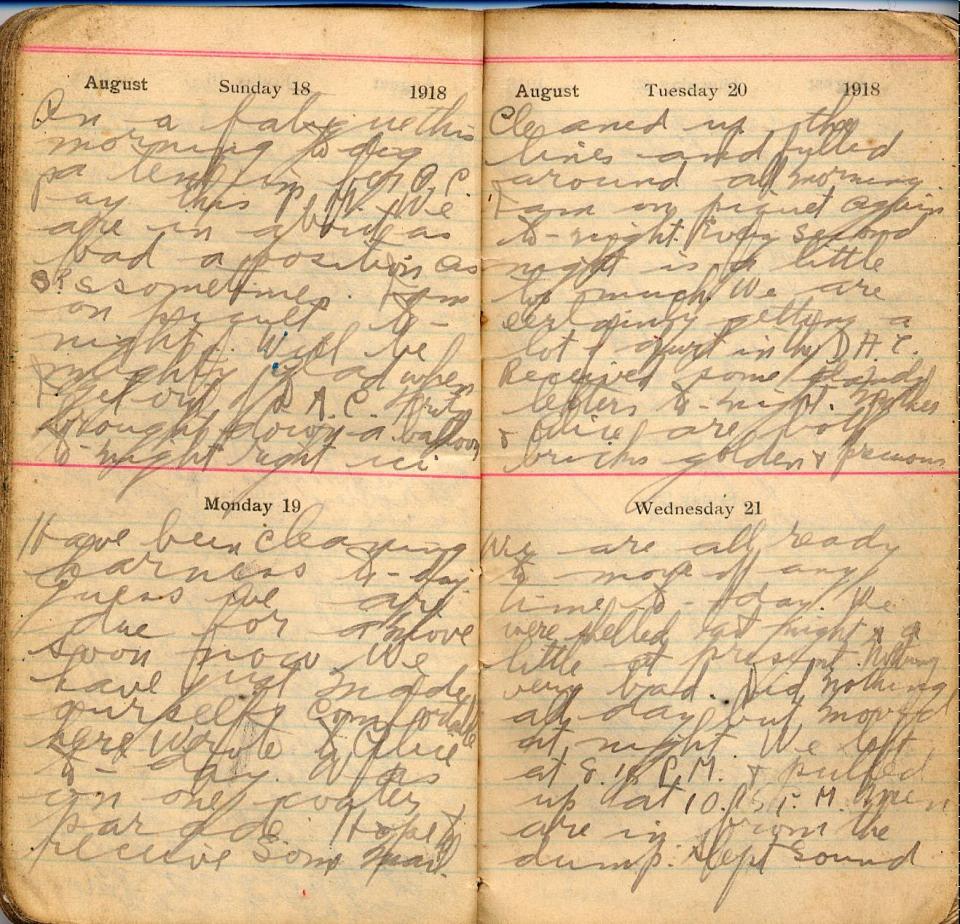 August Sunday 18 1918
On a fatigue this
morning to dig
a tent in for O.C.
Pay this P.M. We
are in about as
bad a position as
sometimes. I am
on picquet to-
night. Will be
mighty glad when
I get out of D.A.C. Fritz
brought down a balloon
to-night right
Monday 19
Have been cleaning
harness to-day
guess we are
due for a move
soon now. We
have just made
ourselves comfortable
here. Wrote to Alice
to-day. Was
on one water
parade. Hope to
receive some mail.
August Tuesday 20 1918
Cleaned up the
lines and
around all morning.
I am on picquet again
to-night. Every second
night is a little
too much. We are
certainly getting a
lot of in the D.A.C.
Received some
letters to-night. Mother
& Alice are both
bricks golden & precious
Wednesday 21
We are all ready
to move off any
time to-day. We
were shelled last night & a
little at present. Nothing
very bad. Did nothing
all day but moved
at night. We left
at 8.15 P.M. & pulled
up at 10.15 P.M. Men
are in from the
dump. Slept sound